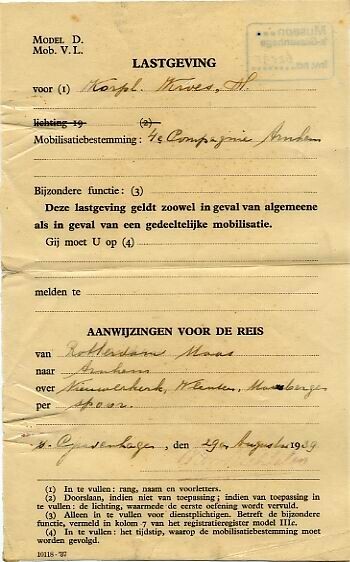 MODEL D.
Mob. V. L.
Museon
's-Gravenhage
Inv. no.
LASTGEVING
voor (1) Korpl. Kroes, H.
lichting 19 (2)
Mobilisatiebestemming: 4e Compagnie Arnhem
Bijzondere functie: (3)
Deze lastgeving geldt zoowel in geval van algemeene
als in geval van een gedeeltelijke mobilisatie.
Gij moet U op (4)
melden te
AANWIJZINGEN VOOR DE REIS
van Rotterdam Maas
naar Arnhem
over Nieuwerkerk, Maarsbergen
per spoor.
's-Gravenhage, den 29e Augustus 1939
(1) In te vullen: rang, naam en voorletters.
(2) Doorslaan, indien niet van toepassing; indien van toepassing in
te vullen: de lichting, waarmede de eerste oefening werd vervuld.
(3) Alleen in te vullen voor dienstplichtigen. Betreft de bijzondere
functie, vermeld in kolom 7 van het registratieregister model IIIc.
(4) In te vullen: het tijdstip, waarop de mobilisatiebestemming moet
worden gevolgd.
10118-'37